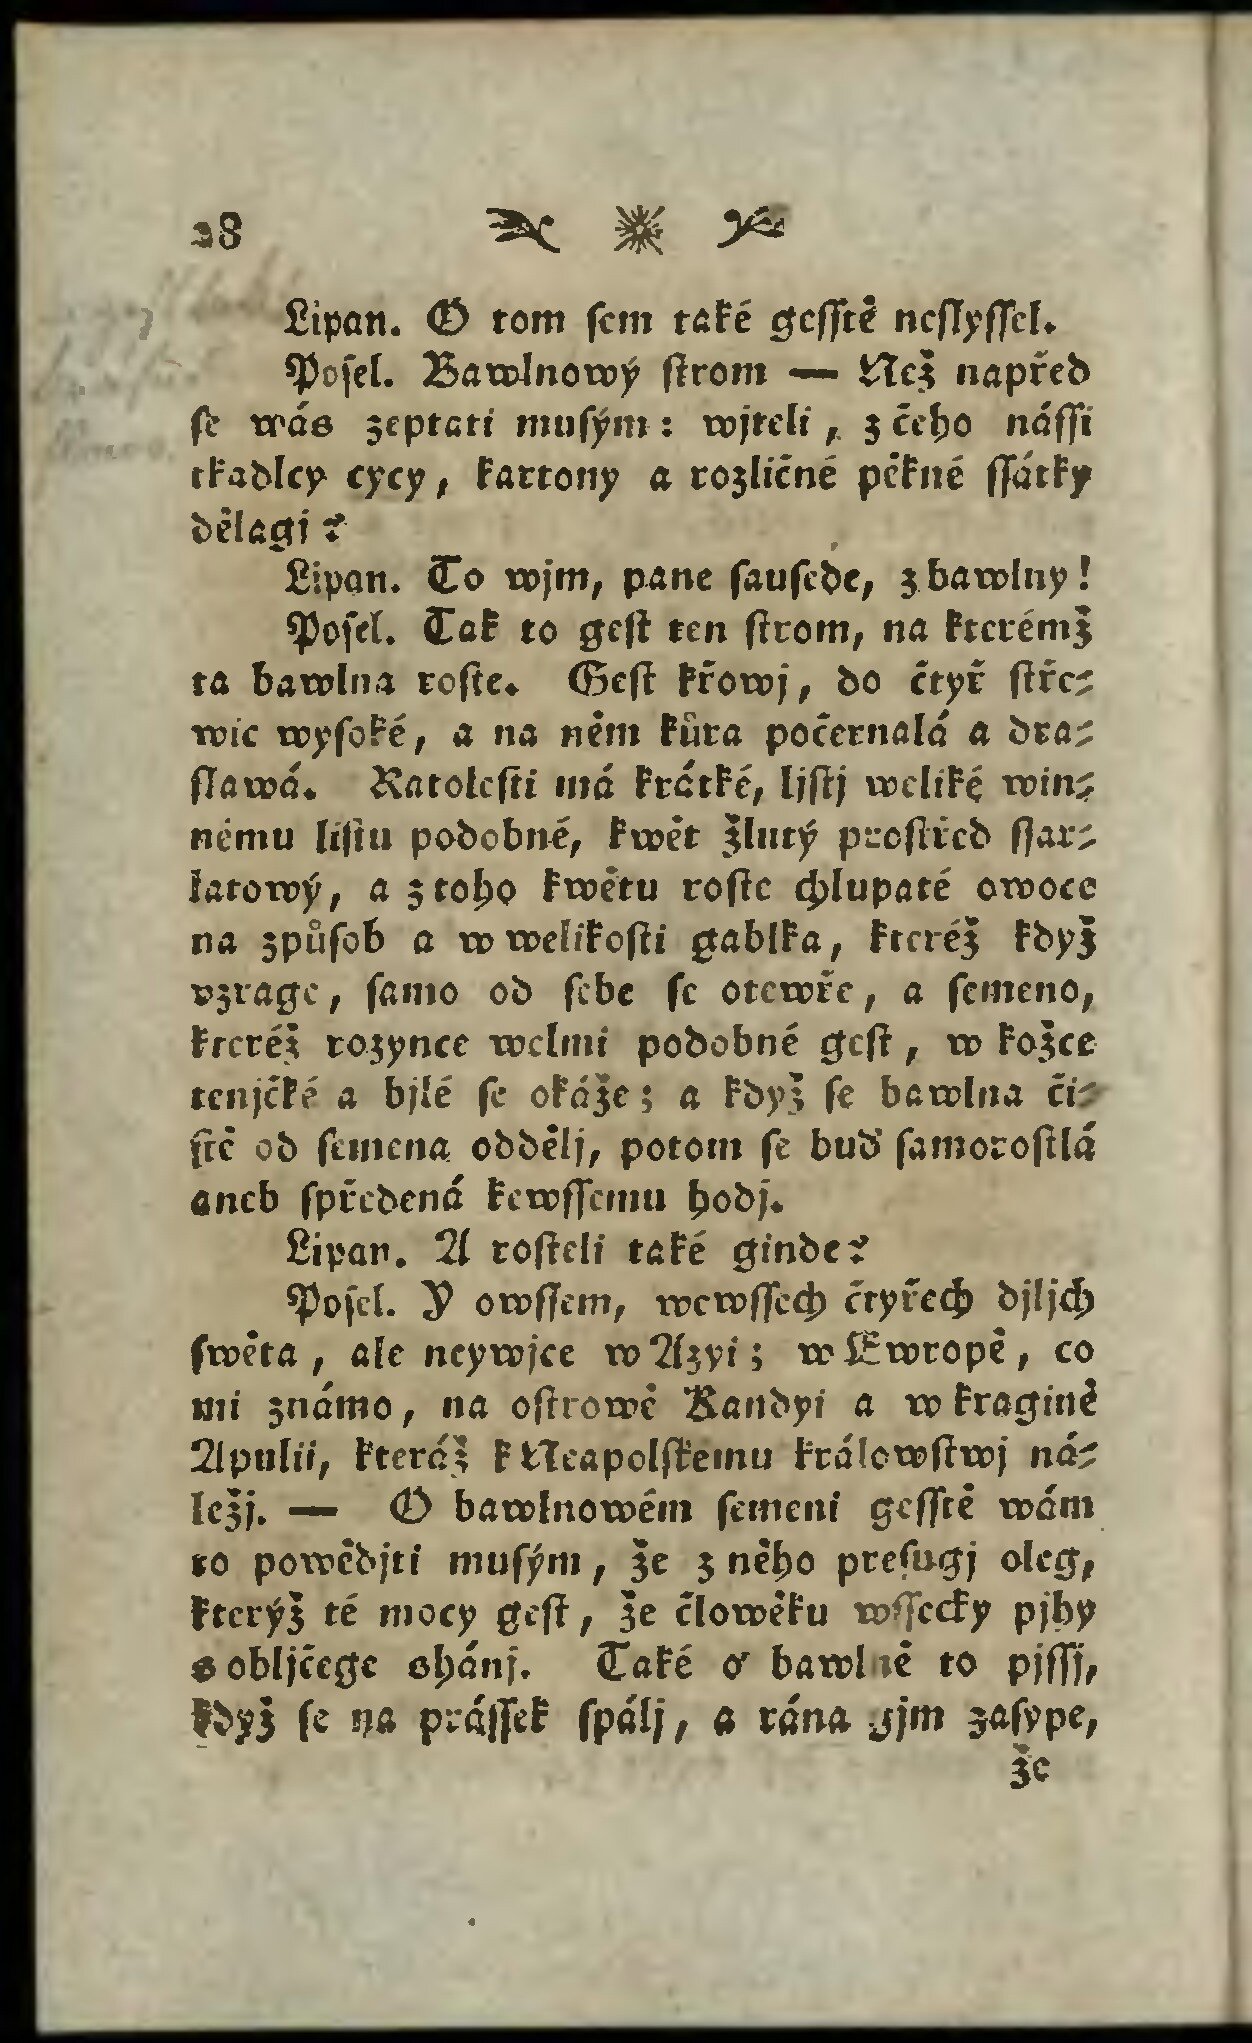 28
Lipan. O tom sem také gessstě neslyssel.
Posel. Bawlnowý strom — Než napřed
se wás zeptati musým: wjteli, z čeho nássi
tkadlcy cycy, kartony a rozličné pěkné ssátky
dělagj?
Lipan. To wjm, pane sausede, z bawlny!
Posel. Tak to gest ten strom, na kterémž
ta bawlna roste. Gest křowj, do čtyř stře-
wic wysoké, a na něm kůra počernalá a dra-
slawá. Ratolesti má krátké, ljstj weliké win-
nému listu podobné, kwět žlutý prostřed ssar-
latowý, a z toho kwětu roste chlupaté owoce
na způsob a w welikosti gablka, kteréž když
vzrage, samo od sebe se otewře, a semeno,
kteréž rozynce welmi podobné gest, w kožce
tenjčké a bjlé se okáže; a když se bawlna či-
stě od semena oddělj, potom se buď samorostlá
aneb spředená kewssemu hodj.
Lipan. A rosteli také ginde?
Posel. Y owssem, wewssech čtyřech djljch
swěta, ale neywjce w Azyi; w Ewropě, co
mi známo, na ostrowě Kandyi a w kragině
Apulii, kteráž k Neapolskému králowstwj ná-
ležj. — O bawlnowém semeni gessstě wám
to powědjti musým, že z něho presugj oleg,
kterýž té mocy gest, že člowěku wssecky pjhy
s obljčege shánj. Také o bawlně to pjssj,
když se na prássek spálj, a rána gjm zasype,
že